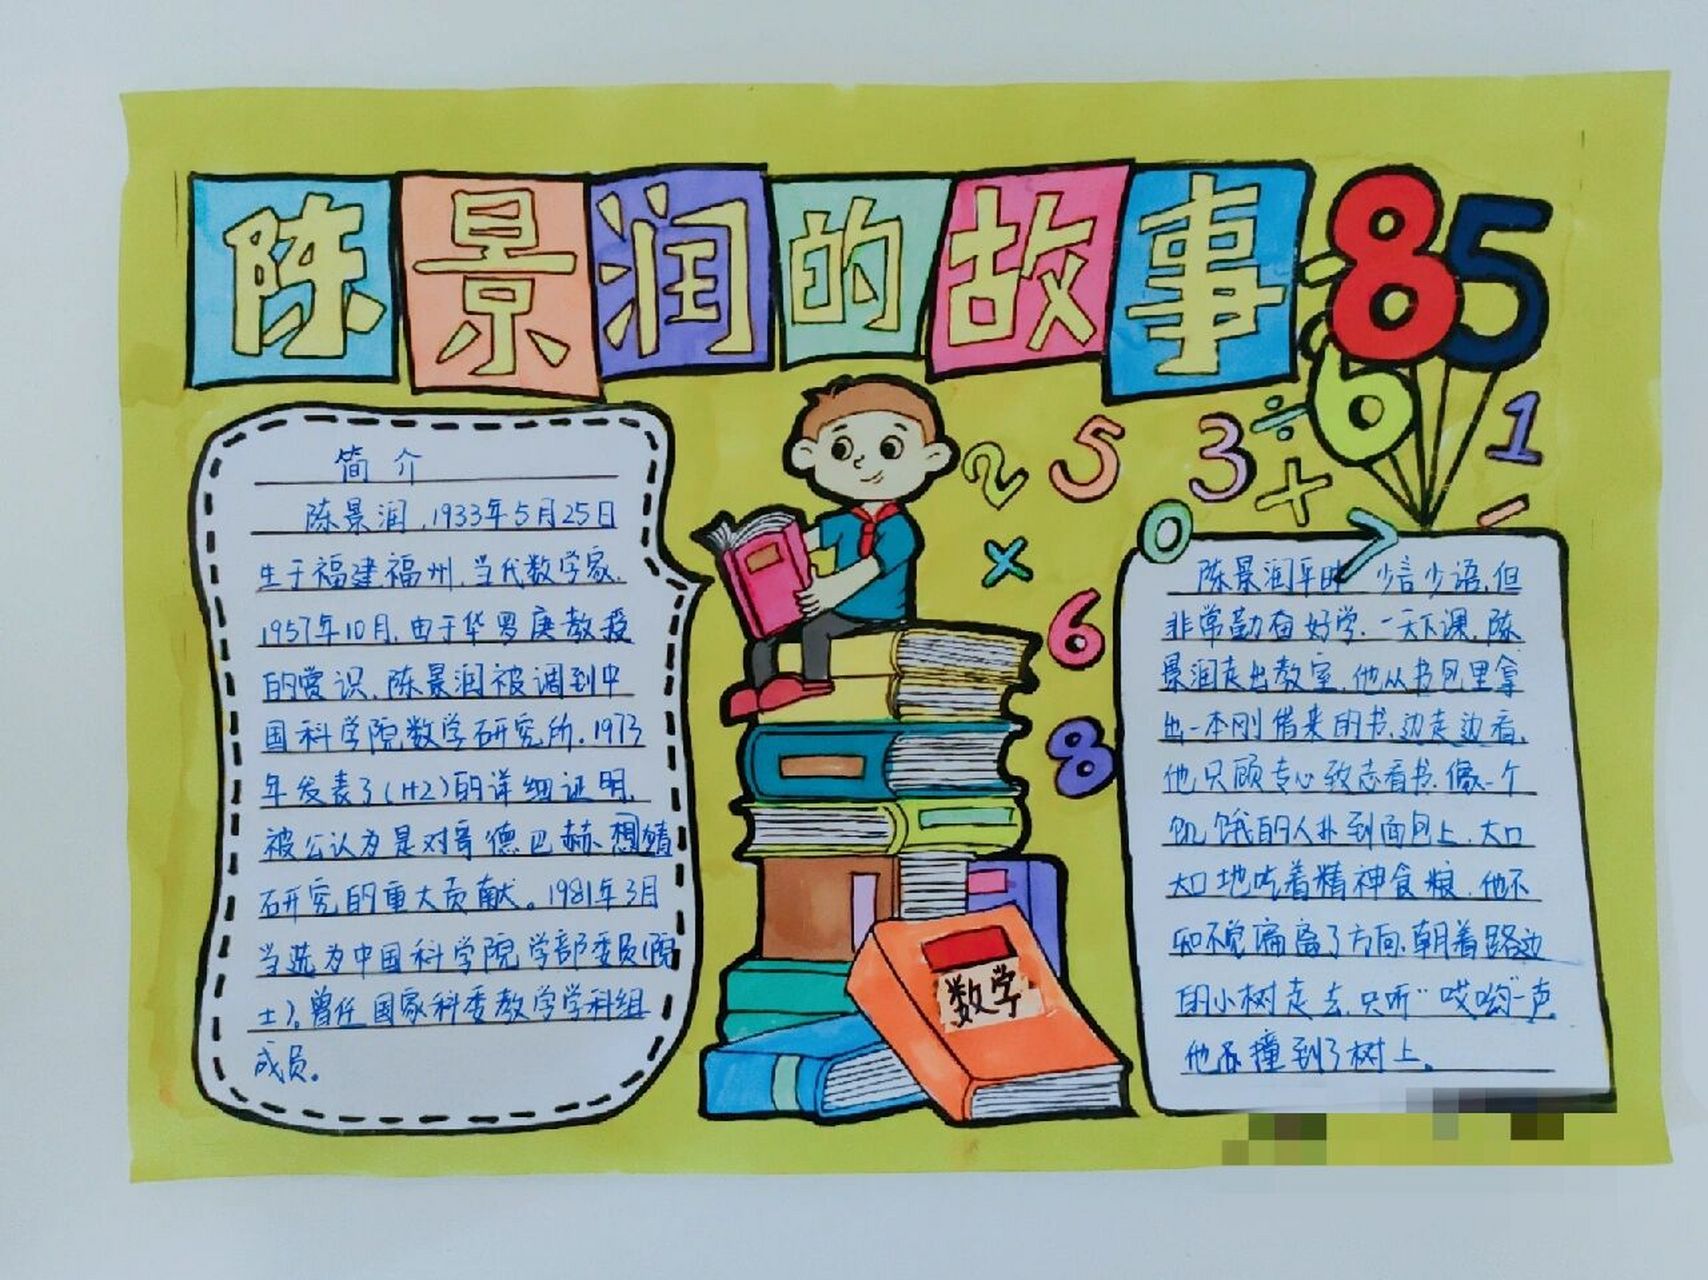 陈景润的故事
85
6
1
2 5 3 ÷
+
0
7
-
×
6
8
数学
简介
陈景润,1933年5月25日
生于福建福州,当代数学家.
1957年10月,由于华罗庚教授
的赏识,陈景润被调到中
国科学院数学研究所.1973
年发表了(1+2)的详细证明,
被公认为是对哥德巴赫猜想
研究的重大贡献。1981年3月
当选为中国科学院学部委员(院
士),曾任国家科委数学学科组
成员。
陈景润平时少言少语,但
非常勤奋好学.一天下课,陈
景润走出教室,他从书包里拿
出一本刚借来的书,边走边看,
他只顾专心致志看书,像一个
饥饿的人扑到面包上,大口
大口地吃着精神食粮,他不
知不觉偏离了方向,朝着路边
的小树走去,只听"哎哟"一声,
他撞到了树上。